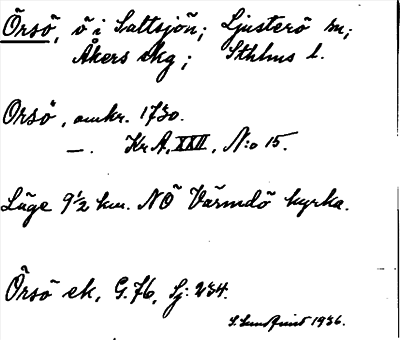 Örsö, ö i Saltsjön; Ljusterö sn;
Åkers skg; Sthlms l.
Orsö, omkr. 1730.
—. Kr A, XXII, N:o 15.
Läge 9 1/2 km. NÖ Värmdö kyrka.
Örsö ek, G. 76, Sj: 234.
S. Sundqvist 1936.